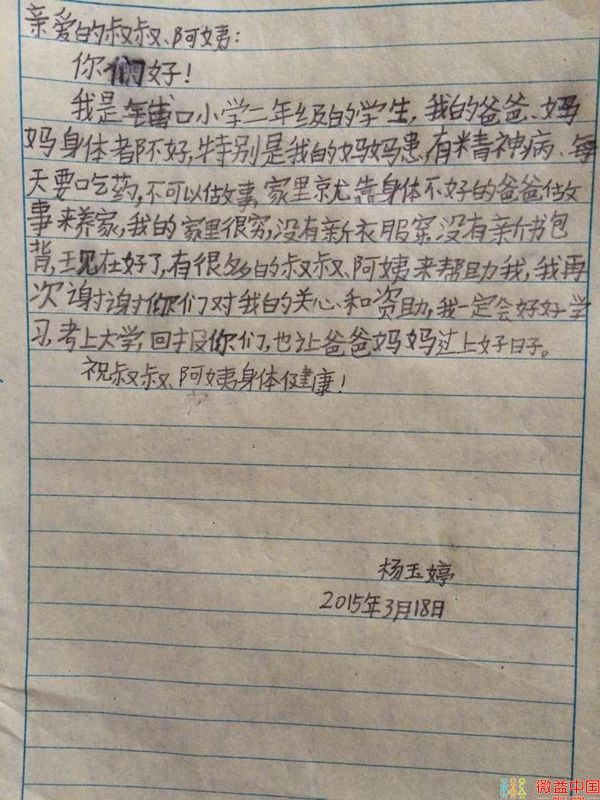 亲爱的叔叔、阿姨:
你们好!
我是铺口小学二年级的学生,我的爸爸、妈
妈身体都不好,特别是我的妈妈患,有精神病、每
天要吃药,不可以做事,家里就靠身体不好的爸爸做
事来养家,我的家里很穷,没有新衣服穿,没有新书包
背,现在好了,有很多的叔叔、阿姨来帮助我,我再
次谢谢你们对我的关心和资助,我一定会好好学
习,考上大学,回报你们,也让爸爸妈妈过上好日子。
祝叔叔、阿姨身体健康!
杨玉婷
2015年3月18日
微益中国